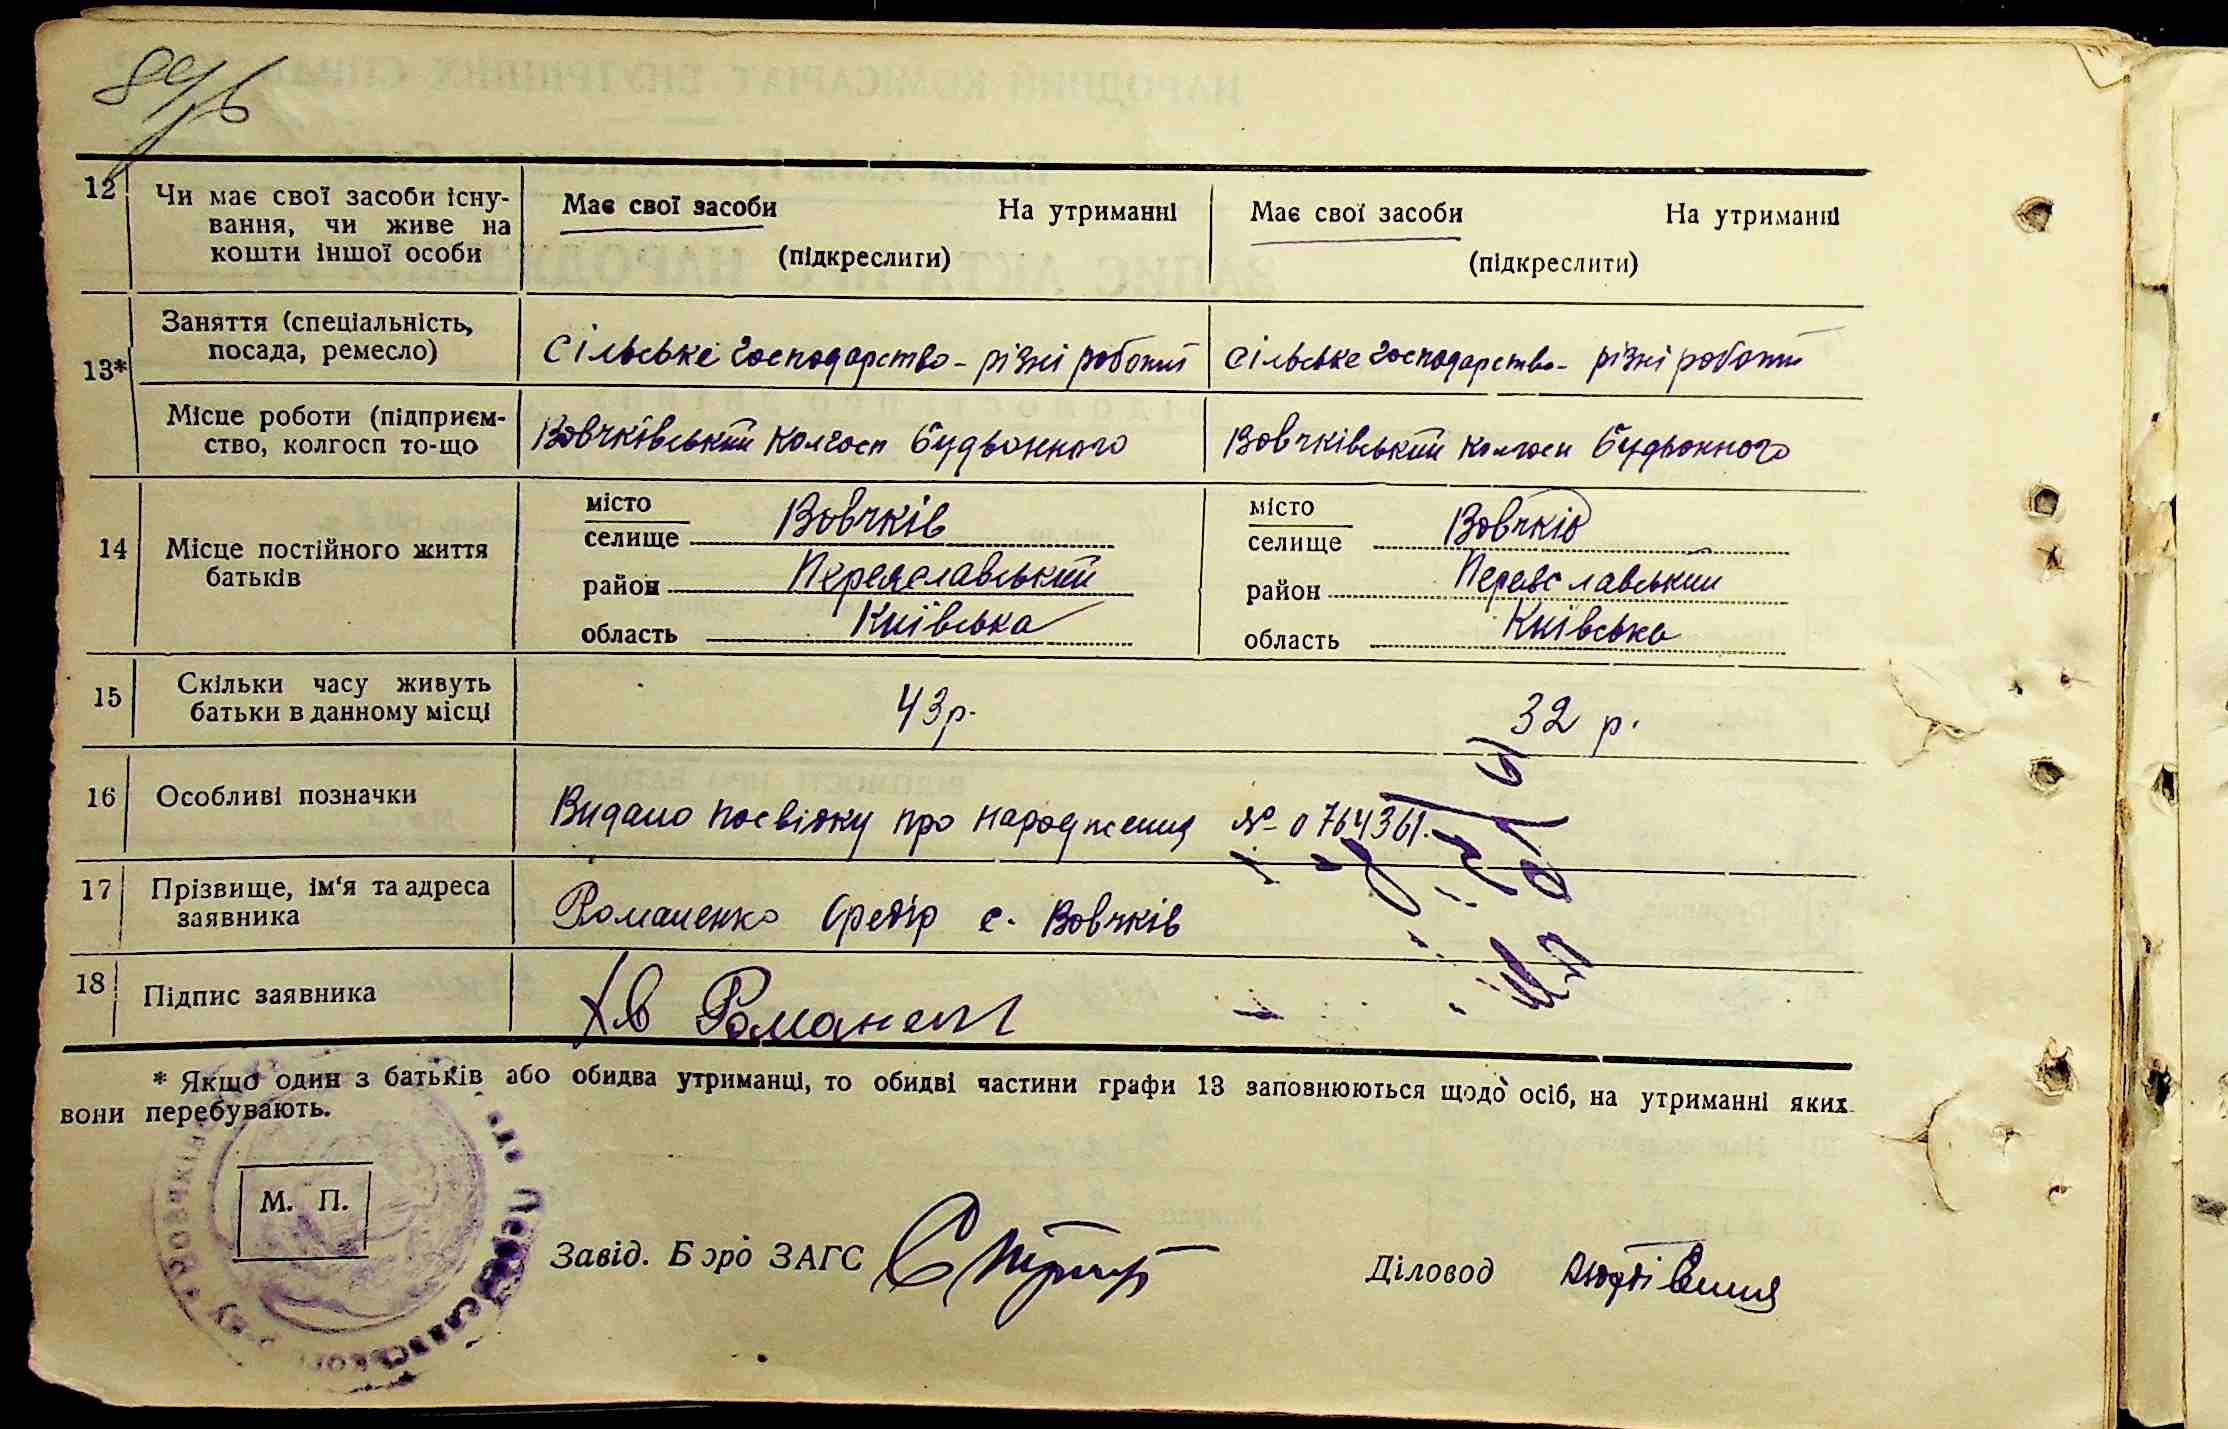 12 Чи має свої засоби існу-
вання, чи живе на
кошти іншої особи
Має свої засоби На утриманні
(підкреслити)
Має свої засоби На утриманні
(підкреслити)
13*
Заняття (спеціальність,
посада, ремесло)
Сільське господарство - різні роботи
Сільське господарство - різні роботи
Місце роботи (підприєм-
ство, колгосп то-що
Вовчківський колгосп Будьонного
Вовчківський колгосп Будьонного
14 Місце постійного життя
батьків
місто
селище Вовчків
район Переяславський
область Київська
місто
селище Вовчків
район Переяславський
область Київська
15 Скільки часу живуть
батьки в данному місці
43 р.
32 р.
16 Особливі позначки
Видано посвідку про народження № 0764361.
17 Прізвище, ім‘я та адреса
заявника
Романенко Федір с. Вовчків
18 Підпис заявника
Хв Романен
* Якщо один з батьків або обидва утриманці, то обидві частини графи 13 заповнюються щодо осіб, на утриманні яких
вони перебувають.
М. П.
Завід. Бюро ЗАГС
Діловод